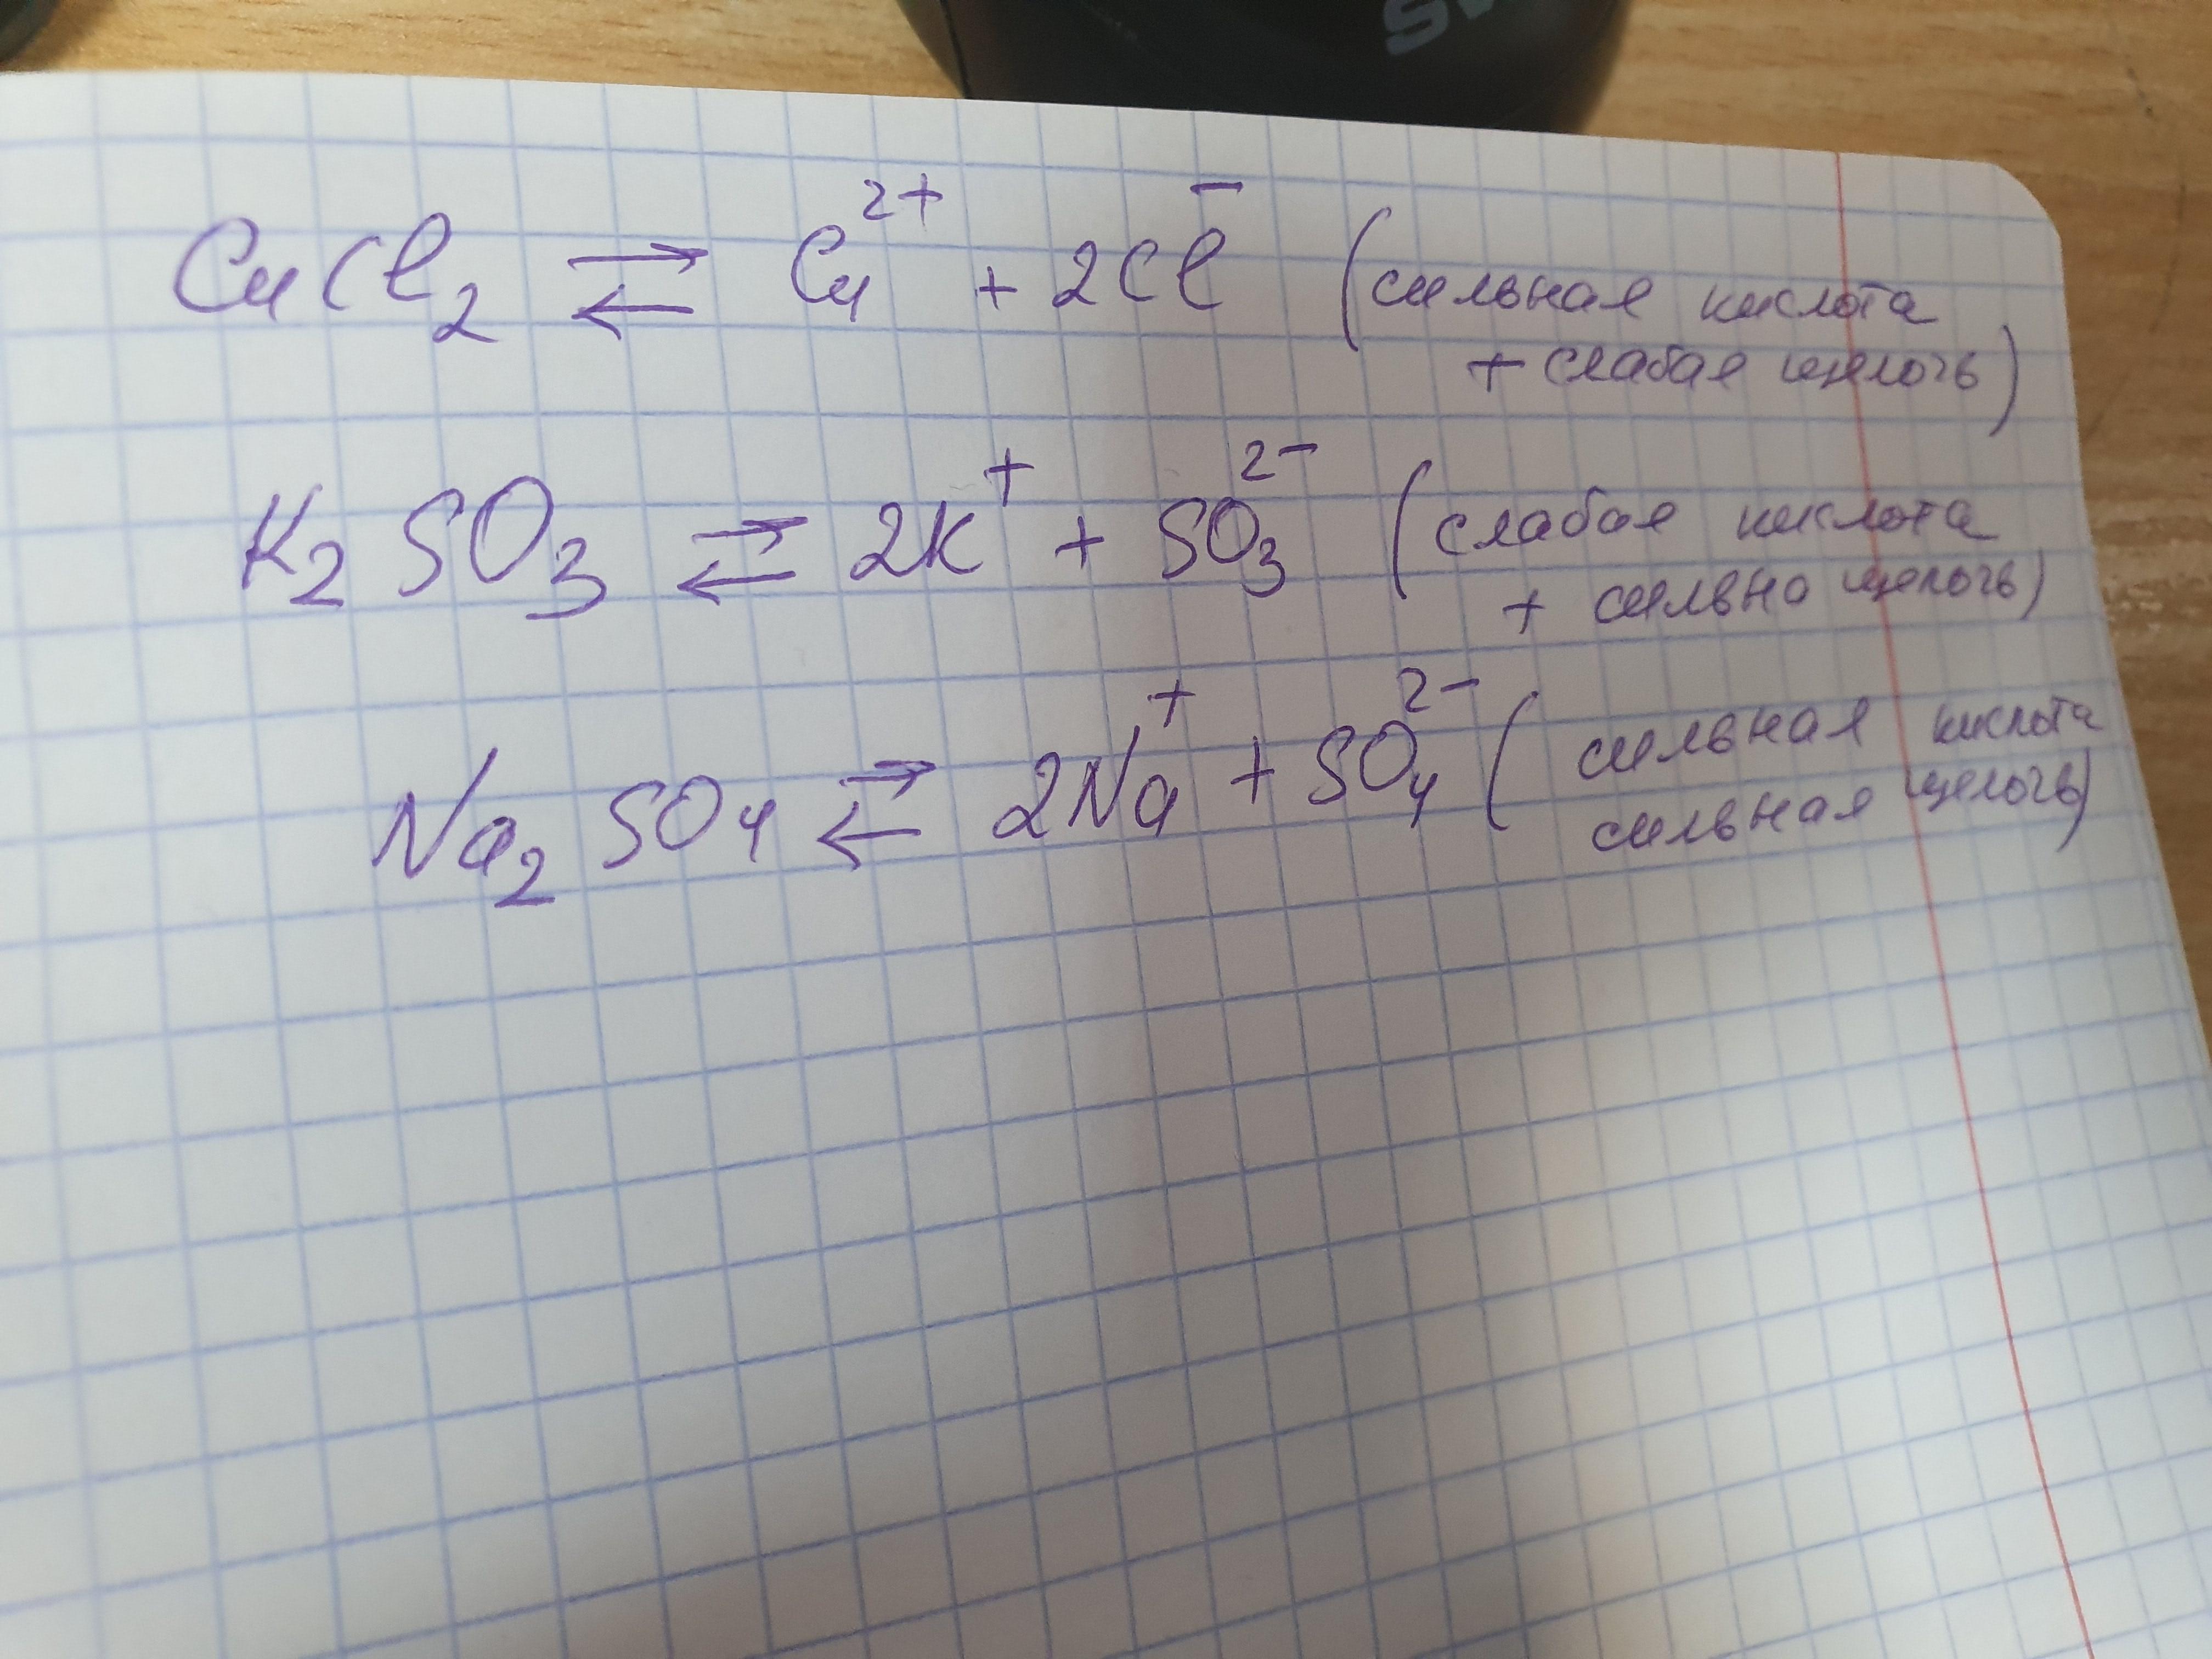 CuCl₂ ⇄ Cu²⁺ + 2Cl⁻ (сильная кислота
+ слабая щелочь)
K₂SO₃ ⇄ 2K⁺ + SO₃²⁻ (слабая кислота
+ сильно щелочь)
Na₂SO₄ ⇄ 2Na⁺ + SO₄²⁻ (сильная кислота
сильная щелочь)